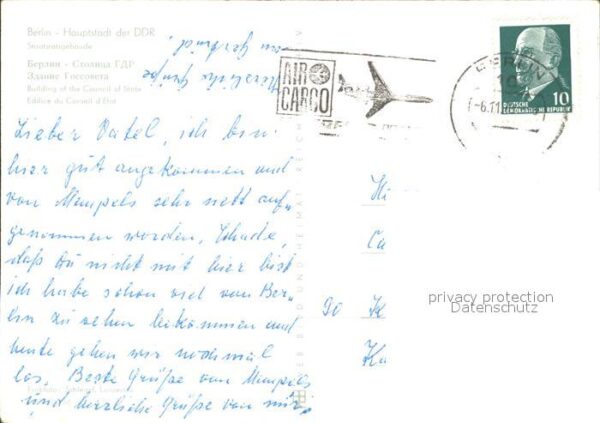 Berlin - Hauptstadt der DDR
Staatsratsgebäude
Берлин - Столица ГДР
Здание Госсовета
Building of the Council of State
Edifice du Conseil d'Etat
Herzliche Grüße
von
AIR
CARGO
BERLIN
10
-6.11
DEUTSCHE
DEMOKRATISCHE REPUBLIK
10
Lieber Vatel, ich bin
hier gut angekommen und
von Mempels sehr nett auf-
genommen worden, Schade,
daß Du nicht mit hier bist
ich habe schon viel von Ber-
lin zu sehen bekommen und
heute gehen wir nochmal
los. Beste Grüße von Mempels
und herzliche Grüße von mir,
BILD UND HEIMAT REICHENBACH
Hi
Ca
90 K
Ka
privacy protection
Datenschutz